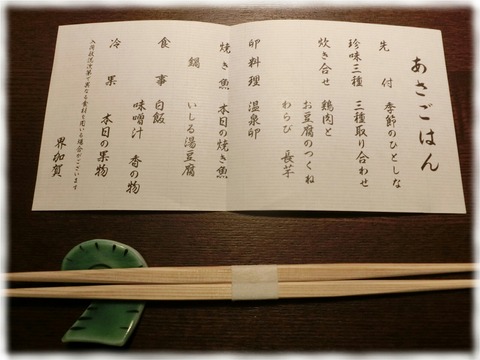 あさごはん
先付 季節のひとしな
珍味三種 三種取り合わせ
炊き合せ 鶏肉と
お豆腐のつくね
わらび 長芋
卵料理 温泉卵
焼き魚 本日の焼き魚
鍋 いしる湯豆腐
食事 白飯
味噌汁 香の物
冷果 本日の果物
入荷状況次第で異なる食材を用いる場合がございます
界加賀